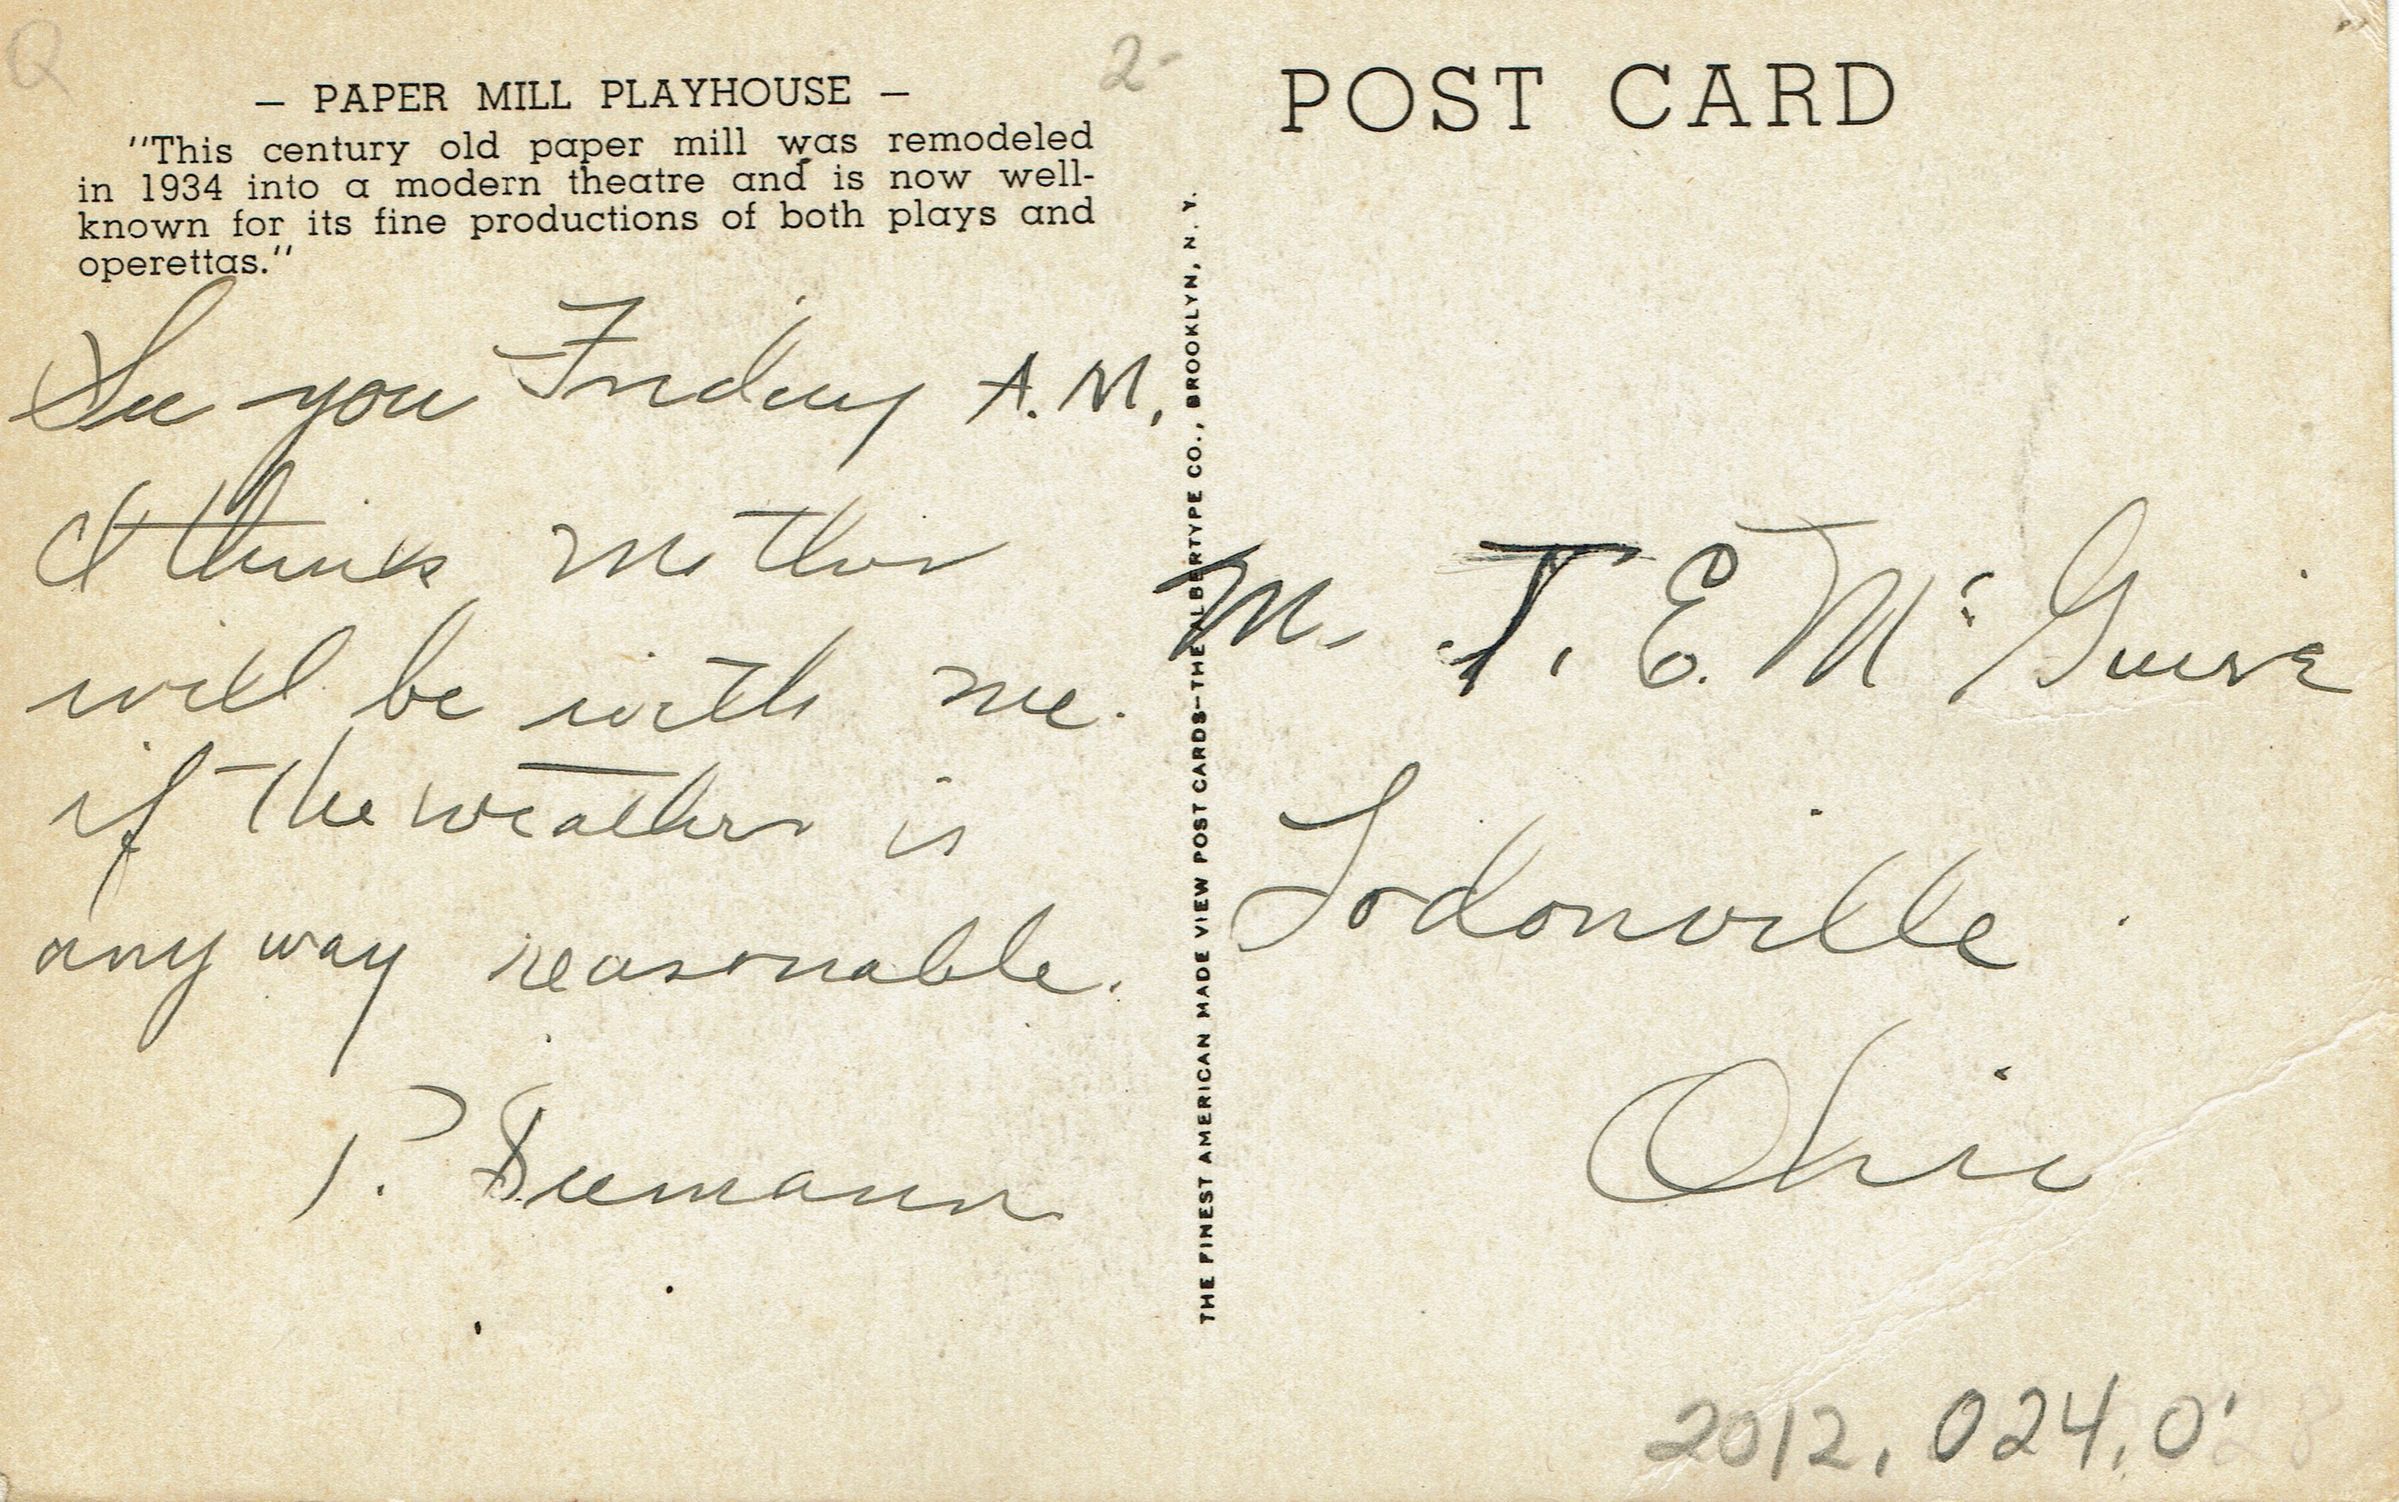 — PAPER MILL PLAYHOUSE —
"This century old paper mill was remodeled
in 1934 into a modern theatre and is now well-
known for its fine productions of both plays and
operettas."
See you Friday A.M,
I think Mother
will be with me.
if the weather is
any way reasonable.
2-
POST CARD
THE FINEST AMERICAN MADE VIEW POST CARDS—THE ALBERTYPE CO., BROOKLYN, N. Y.
M. T. E. McGuire
Lodonville
Ohio
2012, 024, 0